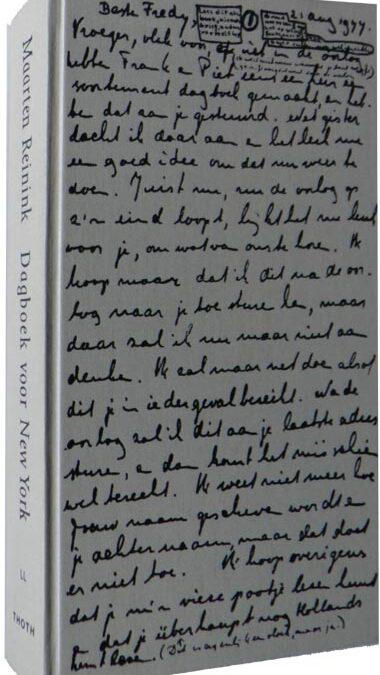 Maarten Reinink Dagboek voor New York
LL
THOTH
Beste Fredy,
21 aug 1944.
Vroeger, vlak voor, of net in de oorlog
hebben Frank en Piet eens een
soortement dagboek gemaakt, en heb-
ben dat aan je gestuurd. gister
dacht ik daar aan en het leek me
een goed idee om dat nu weer te
doen. Juist nu, nu de oorlog op
z'n eind loopt, lijkt het me leuk
voor je, om wat van ons te horen. Ik
hoop maar dat ik dit na de oor-
log naar je toe sturen kan, maar
daar zal ik nu maar niet aan
denken. Ik zal maar net doen alsof
dit je in ieder geval bereikt. Na de
oorlog zal ik dit aan je laatste adres
sturen, en dan komt het misschien
wel terecht. Ik weet niet meer hoe
jouw naam geschreven wordt en
je achternaam, maar dat doet
er niet toe. Ik hoop overigens
dat je m'n vieze pootje lezen kunt
en dat je überhaupt nog Hollands
kunt lezen.